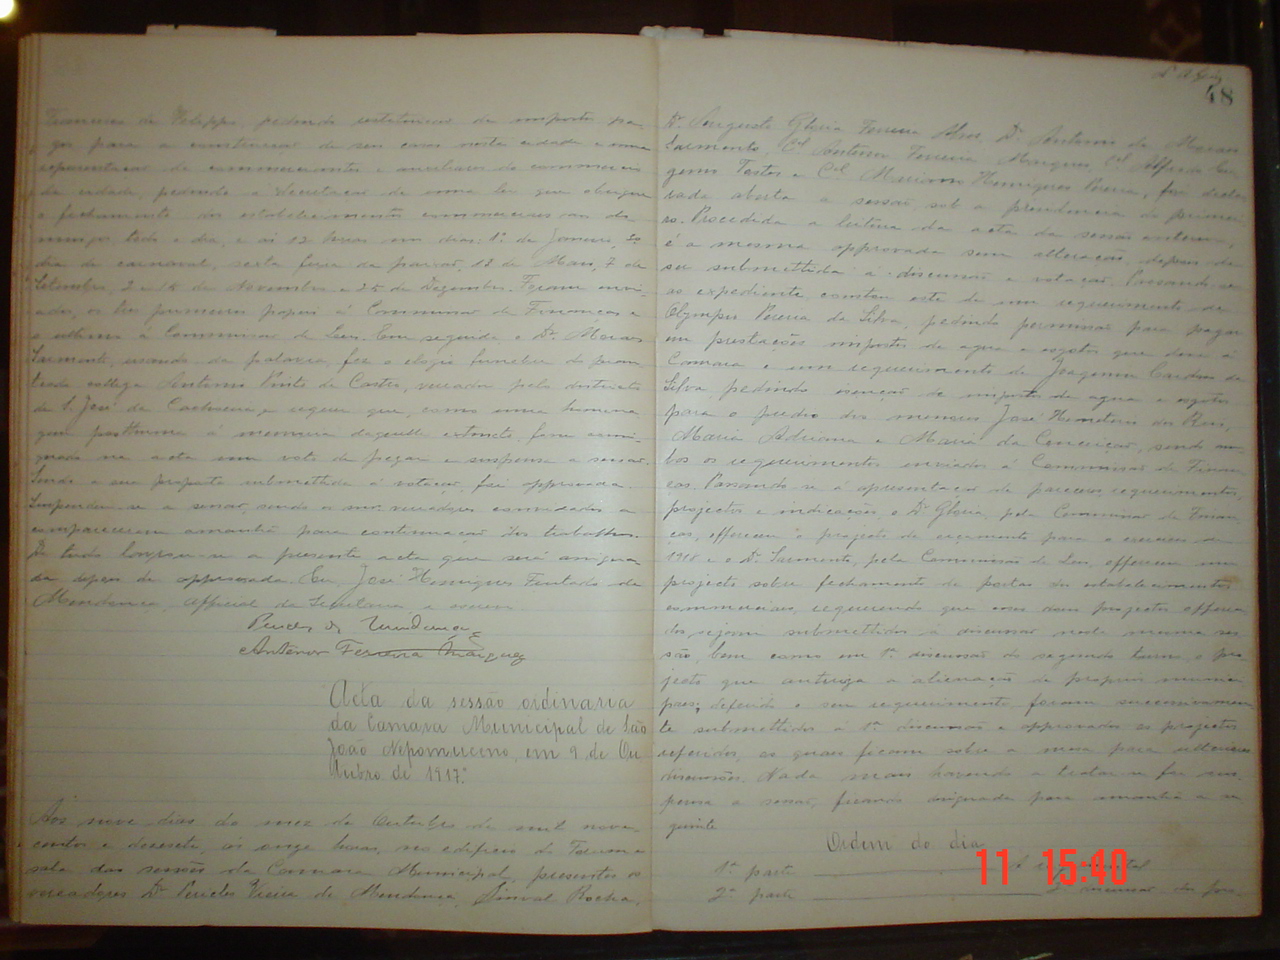 Francisco de Felippe, pedindo restituição de imposto pa-
go para a construcção de seu caso nesta cidade e uma
representação de commerciantes e auxiliares do commercio
da cidade, pedindo a decretação de uma lei que obrigue
o fechamento dos estabelecimentos commerciaes aos do-
mingos todo o dia, e ás 12 horas nos dias: 1º de Janeiro,
dia de carnaval, sexta feira da paixão, 13 de Maio, 7 de
Setembro, 2 e 15 de Novembro e 25 de Dezembro. Foram envi-
ados, os tres primeiros papeis á Commissão de Finanças e
o ultimo á Commissão de Leis. Em seguida o Dr. Moraes
Sarmento, usando da palavra, fez o elogio funebre do
collega Antonio Pinto de Castro, vereador pelo districto
de S. José da Cachoeira e requer que, como uma homena-
gem posthuma á memoria daquelle extincto, fosse consi-
gnado na acta um voto de pezar e suspensa a sessão.
Sendo a sua proposta submettida á votação, foi approvada.
Suspendeu-se a sessão, sendo os srs. vereadores convidados a
comparecerem amanhã para continuação dos trabalhos.
De tudo lavrou-se a presente acta que será assigna-
da depois de approvada. Eu, José Henriques Furtado de
Mendonça, official da Secretaria, o escrevi
Pericles de Mendonça
Antenor Ferreira Marques
Acta da sessão ordinaria
da Camara Municipal de São
João Nepomuceno, em 9 de Ou-
tubro de 1917.
Aos nove dias do mez de Outubro de mil nove-
centos e desesete, ás onze horas, no edificio do Forum e
sala das sessões da Camara Municipal, presentes os
vereadores Dr. Pericles Vieira de Mendonça, Sinval Rocha,
48
Dr. Augusto Gloria Ferreira Alves, Dr. Antonio de Moraes
Sarmento, Cel Antenor Ferreira Marques, Cel Alfredo Eu-
genio Tostes e Cel Mariano Henriques Pereira, foi decla-
rada aberta a sessão, sob a presidencia do primei-
ro. Procedida a leitura da acta da sessão anterior,
é a mesma approvada sem alteração, depois de
ser submettida á discussão e votação. Passando-se
ao expediente, constou este de um requerimento de
Olympio Pereira da Silva, pedindo permissão para pagar
em prestações impostos de agua e exgotos que deve á
Camara e um requerimento de Joaquim Cardoso da
Silva, pedindo isenção de impostos de agua e exgotos
para o predio dos menores José Hemeterio dos Reis,
Maria Adriana e Maria da Conceição, sendo am-
bos os requerimentos enviados á Commissão de Finan-
ças. Passando-se á apresentação de pareceres, requerimentos,
projectos e indicações, o Dr. Gloria, pela Commissão de Finan-
ças, offereceu o projecto de orçamento para o exercicio de
1918 e o Dr. Sarmento, pela Commissão de Leis, offereceu um
projecto sobre fechamento de portas dos estabelecimentos
commerciaes, requerendo que esses dous projectos offereci-
dos sejam submettidos á discussão nesta mesma ses-
são, bem como em 1ª discussão do segundo turno, o pro-
jecto que autoriza a alienação de proprios munici-
paes; deferido o seu requerimento, foram successivamen-
te submettidos á 1ª discussão e approvados os projectos
referidos, os quaes ficam sobre a mesa para ulteriores
discussões. Nada mais havendo a tratar-se foi sus-
pensa a sessão, ficando designada para amanhã a se-
guinte
Ordem do dia
1ª parte
2ª parte 2ª discussão dos pro-
11 15:40